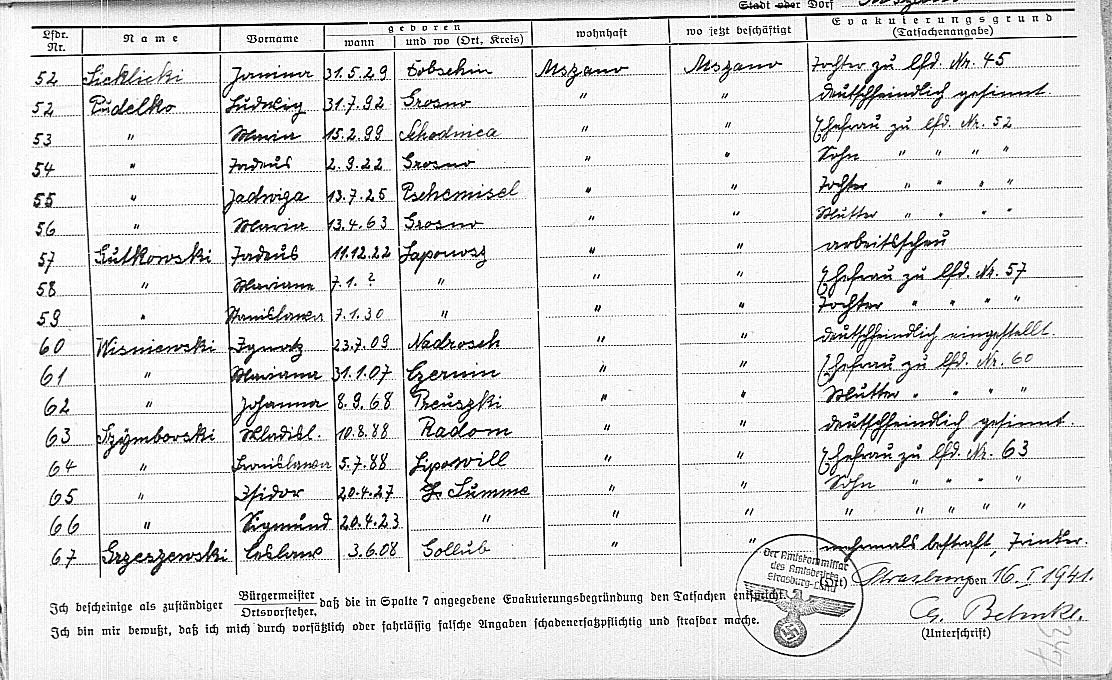 Stadt oder Dorf
Lfdr. Nr. Name Vorname geboren wann und wo (Ort, Kreis) wohnhaft wo jetzt beschäftigt Evakuierungsgrund (Tatsachenangabe)
52 Sicklicki Janina 31.5.29 Mszano Mszano Tochter zu lfd. Nr. 45
52 Pudelko Ludwig 31.7.92 Grosno " " deutschfeindlich gesinnt.
53 " Maria 15.2.99 Schodnica " " Ehefrau zu lfd. Nr. 52
54 " Tadeus 2.9.22 Grosno " " Sohn " " " "
55 " Jadwiga 13.7.25 Pschemisel " " Tochter " " " "
56 " Maria 13.4.63 Grosno " " Mutter " " " "
57 Gutkowski Tadeus 11.12.22 " " arbeitsscheu
58 " Mariane 7.1.? " " " Ehefrau zu lfd. Nr. 57
59 " Stanislawa 7.1.30 " " " Tochter " " " "
60 Wisniewski Ignatz 23.7.09 Nadrosch " " deutschfeindlich eingestellt.
61 " Mariana 31.1.07 Czernin " " Ehefrau zu lfd. Nr. 60
62 " Johanna 8.9.68 " " Mutter " " " "
63 Szymborski Wladisl. 10.8.88 Radom " " deutschfeindlich gesinnt.
64 " Bronislawa 5.7.88 " " Ehefrau zu lfd. Nr. 63
65 " Isidor 20.4.27 Summe " " Sohn " " " "
66 " Sigmund 20.4.23 " " " " " " " "
67 Grzeszewski Ceslaw 3.6.08 Gollub " " mehrmals bestraft, Trinker.
Der Amtskommissar
des Amtsbezirks
Strasburg-Land
(Ort) Strasburg den 16.I.1941.
Ich bescheinige als zuständiger Bürgermeister Ortsvorsteher. daß die in Spalte 7 angegebene Evakuierungsbegründung den Tatsachen entspricht.
Ich bin mir bewußt, daß ich mich durch vorsätzlich oder fahrlässig falsche Angaben schadenersatzpflichtig und strafbar mache.
(Unterschrift)